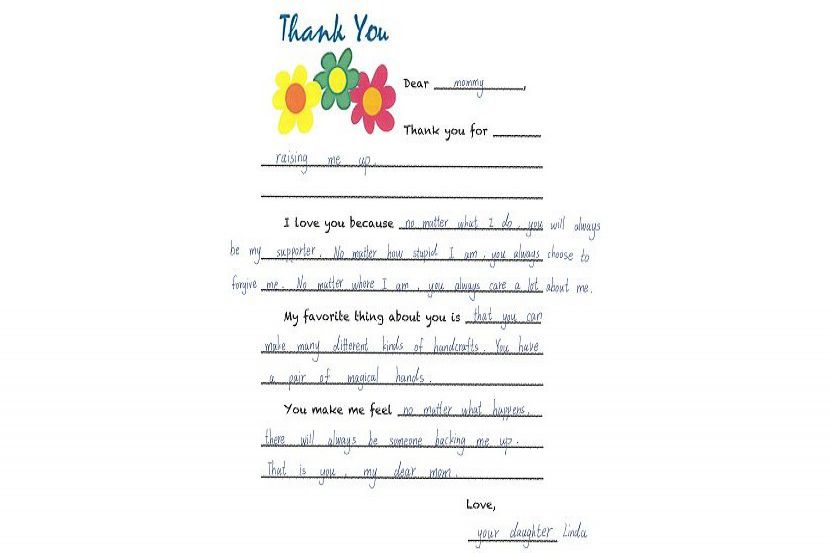 Thank You
Dear mommy,
Thank you for
raising me up.
I love you because no matter what I do, you will always
be my supporter. No matter how stupid I am, you always choose to
forgive me. No matter where I am, you always care a lot about me.
My favorite thing about you is that you can
make many different kinds of handcrafts. You have
a pair of magical hands.
You make me feel no matter what happens,
there will always be someone backing me up.
That is you, my dear mom.
Love,
your daughter Linda